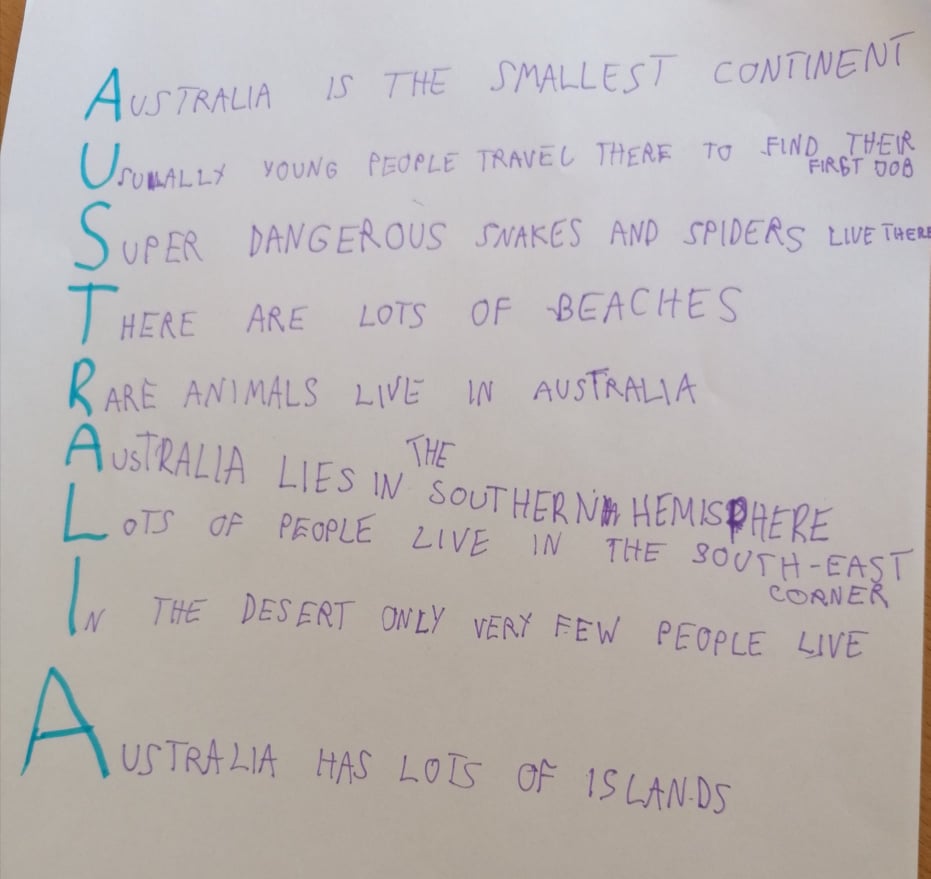 AUSTRALIA IS THE SMALLEST CONTINENT
USUALLY YOUNG PEOPLE TRAVEL THERE TO FIND THEIR
FIRST JOB
SUPER DANGEROUS SNAKES AND SPIDERS LIVE THERE
THERE ARE LOTS OF BEACHES
RARE ANIMALS LIVE IN AUSTRALIA
AUSTRALIA LIES IN THE SOUTHERN HEMISPHERE
LOTS OF PEOPLE LIVE IN THE SOUTH-EAST
CORNER
IN THE DESERT ONLY VERY FEW PEOPLE LIVE
AUSTRALIA HAS LOTS OF ISLANDS